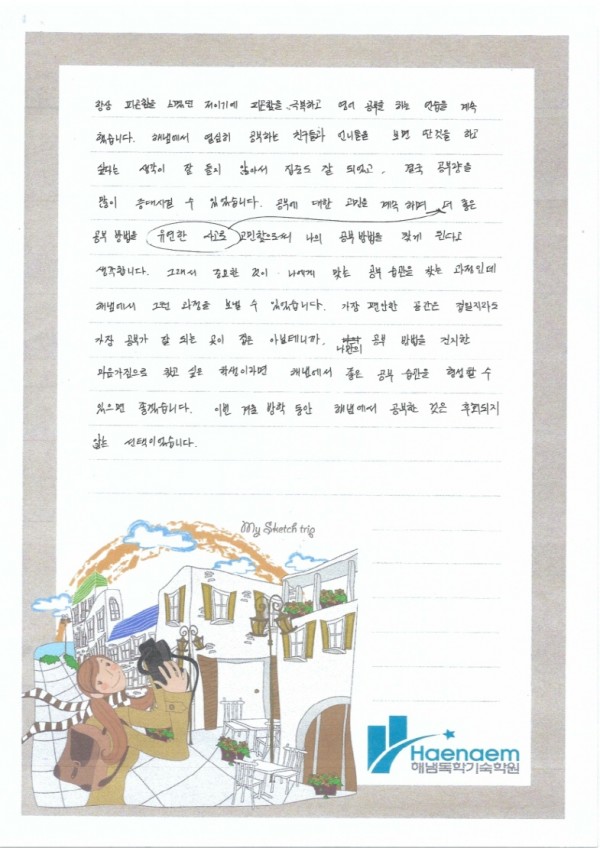 항상 피곤함을 느꼈던 저이기에 피곤함을 극복하고 영어 공부를 하는 연습을 계속
했습니다. 해냄에서 열심히 공부하는 친구들과 언니들을 보면 딴것을 하고
싶다는 생각이 잘 들지 않아서 집중도 잘 되었고, 결국 공부량을
많이 증대시킬 수 있었습니다. 공부에 대한 고민을 계속 하며 더 좋은
공부 방법을 유연한 사고로 고민함으로써 나의 공부방법을 찾게 된다고
생각합니다. 그래서 중요한 것이 나에게 맞는 공부 습관을 찾는 과정인데
해냄에서 그런 과정을 보낼 수 있었습니다. 가장 편안한 공간은 집일지라도
가장 공부가 잘 되는 곳이 집은 아닐테니까. 나만의 공부 방법을 진지한
마음가짐으로 찾고 싶은 학생이라면 해냄에서 좋은 공부 습관을 형성할 수
있으면 좋겠습니다. 이번 겨울 방학 동안 해냄에서 공부한 것은 후회되지
않는 선택이었습니다.
My Sketch trip
Haenaem
해냄독학기숙학원